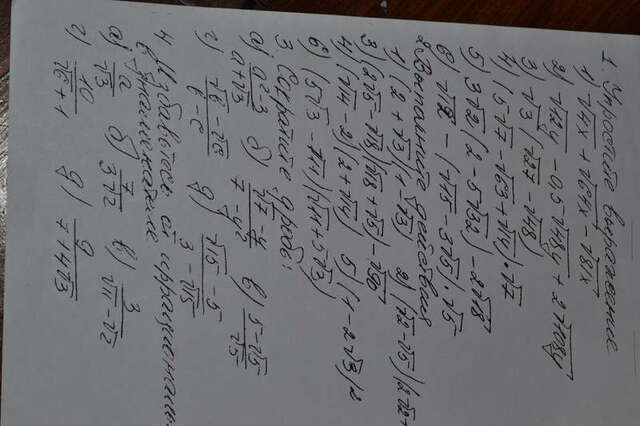 1. Упростите выражение
1) √4x + √64x - √81x
2) √12y - 0,5√48y + 2√108y
3) √3(√27 - √48)
4) (5√7 - √63 + √14)·√7
5) 3√2(2 - 5√32) - 2√18
6) - (√45 - 3√5)·√5
2. Выполните действия
1) (2 + √3)(1 + √3) 2) (√2 - √5)(2√2 +
3) (2√5 - √18)(√18 + √5) -
4) (√14 - 2)(2 + √14) 5) (1 - 2√3)2
6) (5√3 - √14)(√14 + 5√3)
3 Сократите дробь:
а) a²-3 / a+√3 б) в) 5-√5 / 2√5
г) √b - √c / b - c д) √15 - 5 / 3 - √15
4. Избавьтесь от иррациональн
в знаменателе
а) a / √3 б) 7 / 3√2 в) 3 / √11 - √2
г) 10 / √6 + 1 д) 9 / 7 + 4√3